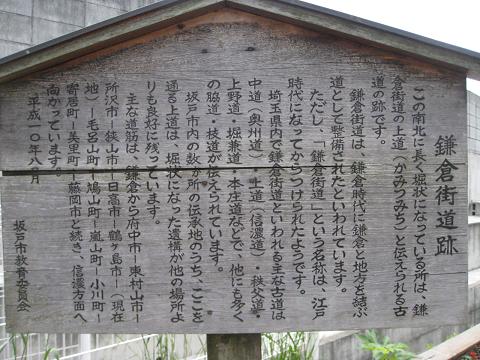 鎌倉街道跡
この南北に長く堀状になっている所は、鎌
倉街道の上道（かみつみち）と伝えられる古
道の跡です。
鎌倉街道は、鎌倉時代に鎌倉と地方を結ぶ
道として整備されたといわれています。
ただし、「鎌倉街道」という名称は、江戸
時代になってからつけられたようです。
埼玉県内で鎌倉街道といわれる主な古道は
中道（奥州道）・上道（信濃道）・秩父道・
上野道・堀兼道・本庄道などで、他にも多く
の脇道・枝道が伝えられています。
坂戸市内の数か所の伝承地のうち、ここを
通る上道は、堀状になった遺構が他の場所よ
りも良好に残っています。
主な道筋は、鎌倉から府中市ー東村山市ー
所沢市ー狭山市ー日高市ー鶴ヶ島市ー（現在
地）ー毛呂山町ー鳩山町ー嵐山町ー小川町ー
寄居町ー美里町ー藤岡市と続き、信濃方面へ
向かっています。
平成一〇年八月
坂戸市教育委員会